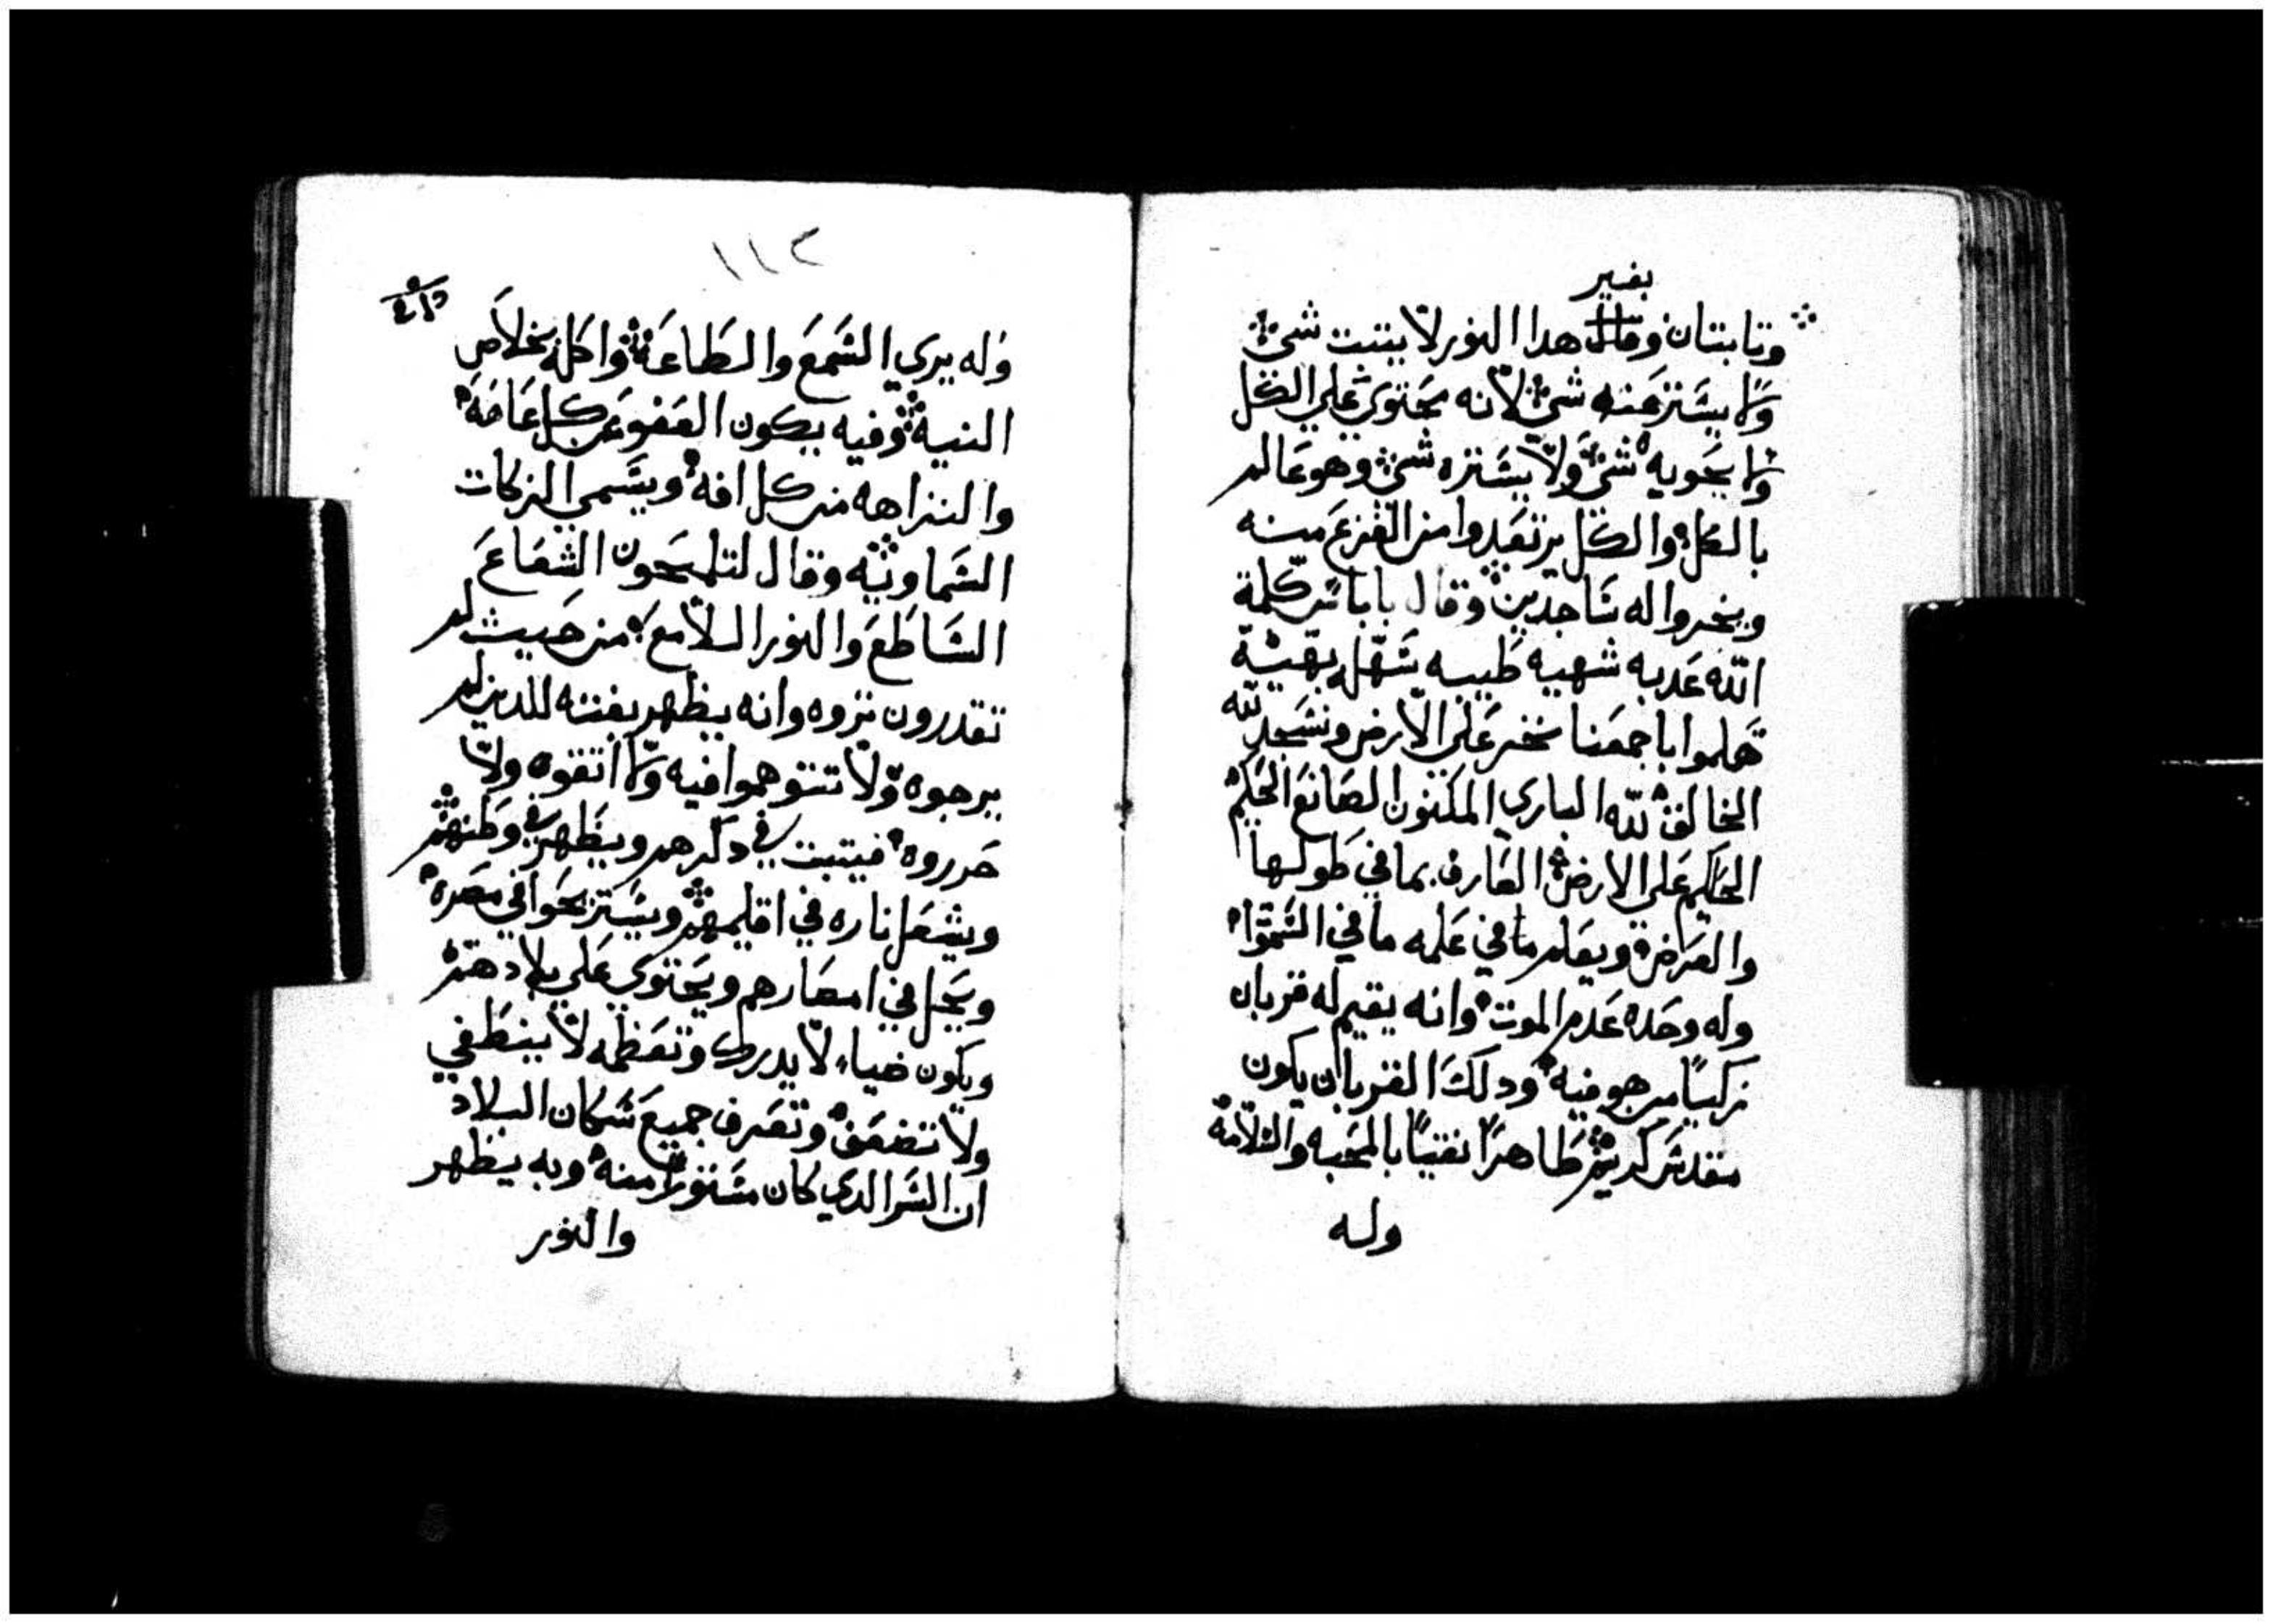 بغير
وتابتان وقال هدا النور لا يتبت شي
ولا يستتر عنه شي لانه يحتوي علي الكل
ولا يحويه شي ولا يستره شي وهو عالم
بالكل والكل يرتعدوا من الفزع منه
ويخروا له ساجدين وقال باباس كلمة
الله عدبه شهيه طيبه سهله بهيه
هلموا باجمعنا نخر علي الارض ونسجد لله
الخالق لله الباري المكنون الصانع الحكيم
الحاكم علي الارض العارف بما في طولها
والعرض ويعلم ما في علمه ما في السموات
وله وحده عدم الموت وانه يقيم له قربان
زكيا من هو فيه ودلك القربان يكون
مقدس كريم طاهرا نقيا بالمحبه والسلامه
وله
١١٢
وله يري السمع والطاعة واكله بخلاص
النية وفيه يكون العفو عن كل عاهة
والنزاهه من كل افه ويسمي الزكات
السماويه وقال لتلمحون الشعاع
الساطع والنور اللامع من حيث لم
تقدرون تروه وانه يظهر بغته للدين لم
يرجوه ولا تتوهموا فيه ولا اتقوه ولا
حرروه فيتبت في دكرهم ويظهر في وطنهم
ويشعل ناره في اقليمهم ويستر نحوا في مصره
ويحل في امصارهم ويحتوي علي بلادهم
ويكون ضياء لا يدرك وتعظمه لا ينطفي
ولا تضعف وتعرف جميع سكان البلاد
ان السر الدي كان مستورا منه وبه يظهر
والنور